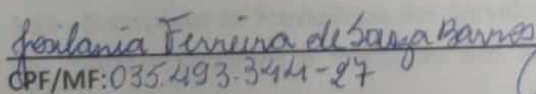 Josilania Ferreira de Souza Barros
CPF/MF:035.493.344-27